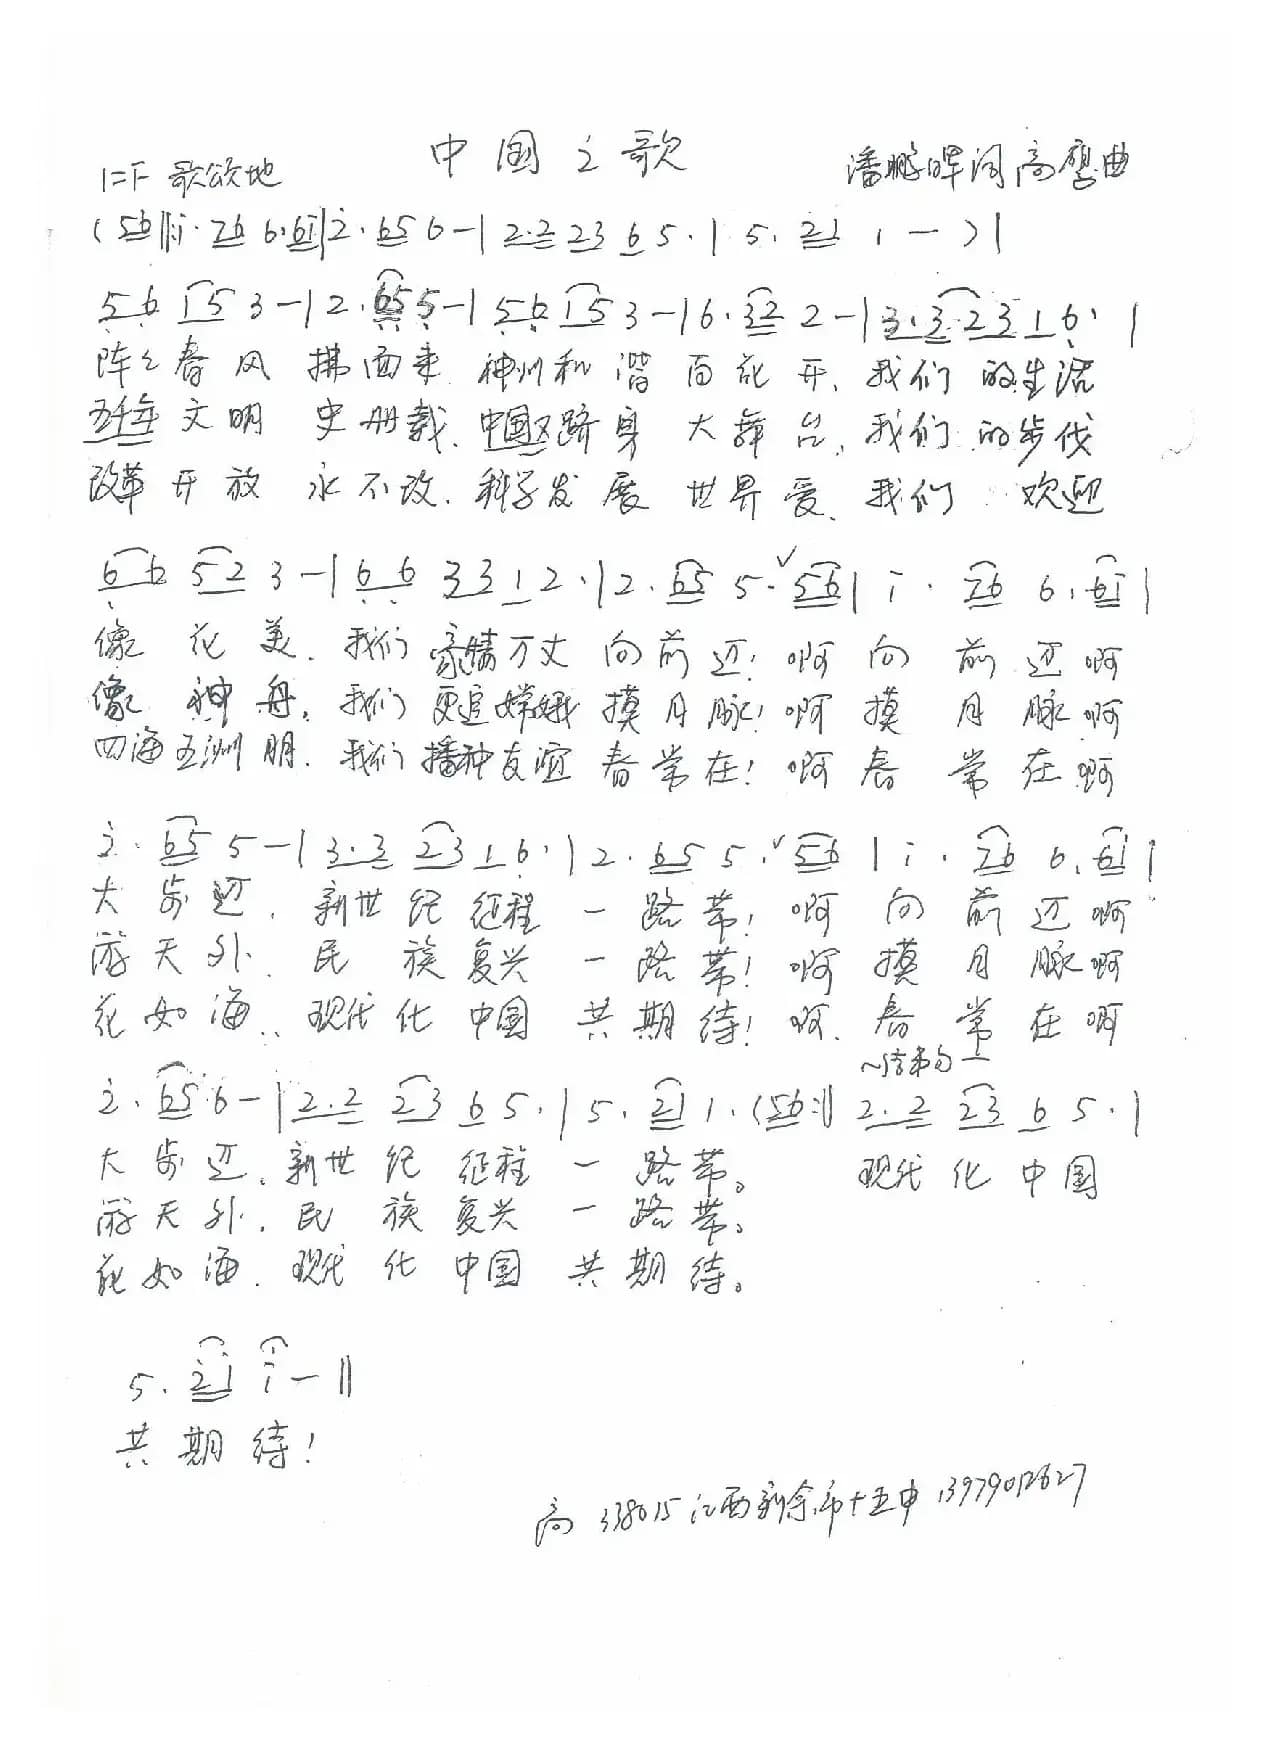 中国之歌
1=F 歌颂地 潘鹏晖词 高鹰曲
(56‖:i· 76 6·6i|2· 65 6 -|2·2 23 6 5·|5· 21 1 - )|
5 6 15 3 -|2· 65 5 -|56 15 3 -|6· 32 2 -|3·3 23 1 6·|
阵々春风 拂面来 神州和谐百花开,我们的生活
五千年文明 史册载、中国又跻身大舞台,我们的步伐
改革开放 永不改、科学发展世界爱、我们 欢迎
6 6 52 3 -|6 6 33 1 2·|2· 65 5·√56|i· 76 6·6i|
像 花 美、我们豪情万丈向前迈!啊向前迈啊
像 神舟,我们更追嫦娥摸月脉!啊摸月脉啊
四海五洲朋、我们播种友谊春常在!啊春常在啊
2· 65 5 -|3·3 23 1 6·|2· 65 5·√56|i· 76 6·6i|
大步迈,新世纪征程一路带!啊向前迈啊
游天外、民族复兴一路带!啊摸月脉啊
花如海、现代化中国共期待!啊、春常在啊
~结束句~
2· 65 6 -|2·2 23 6 5·|5· 21 1·(56:‖2·2 23 6 5·|
大步迈、新世纪征程一路带。 现代化中国
游天外,民族复兴一路带。
花如海、现代化中国共期待。
5· 2i i -‖
共期待!
高 338015 江西新余市十五中 13979012627